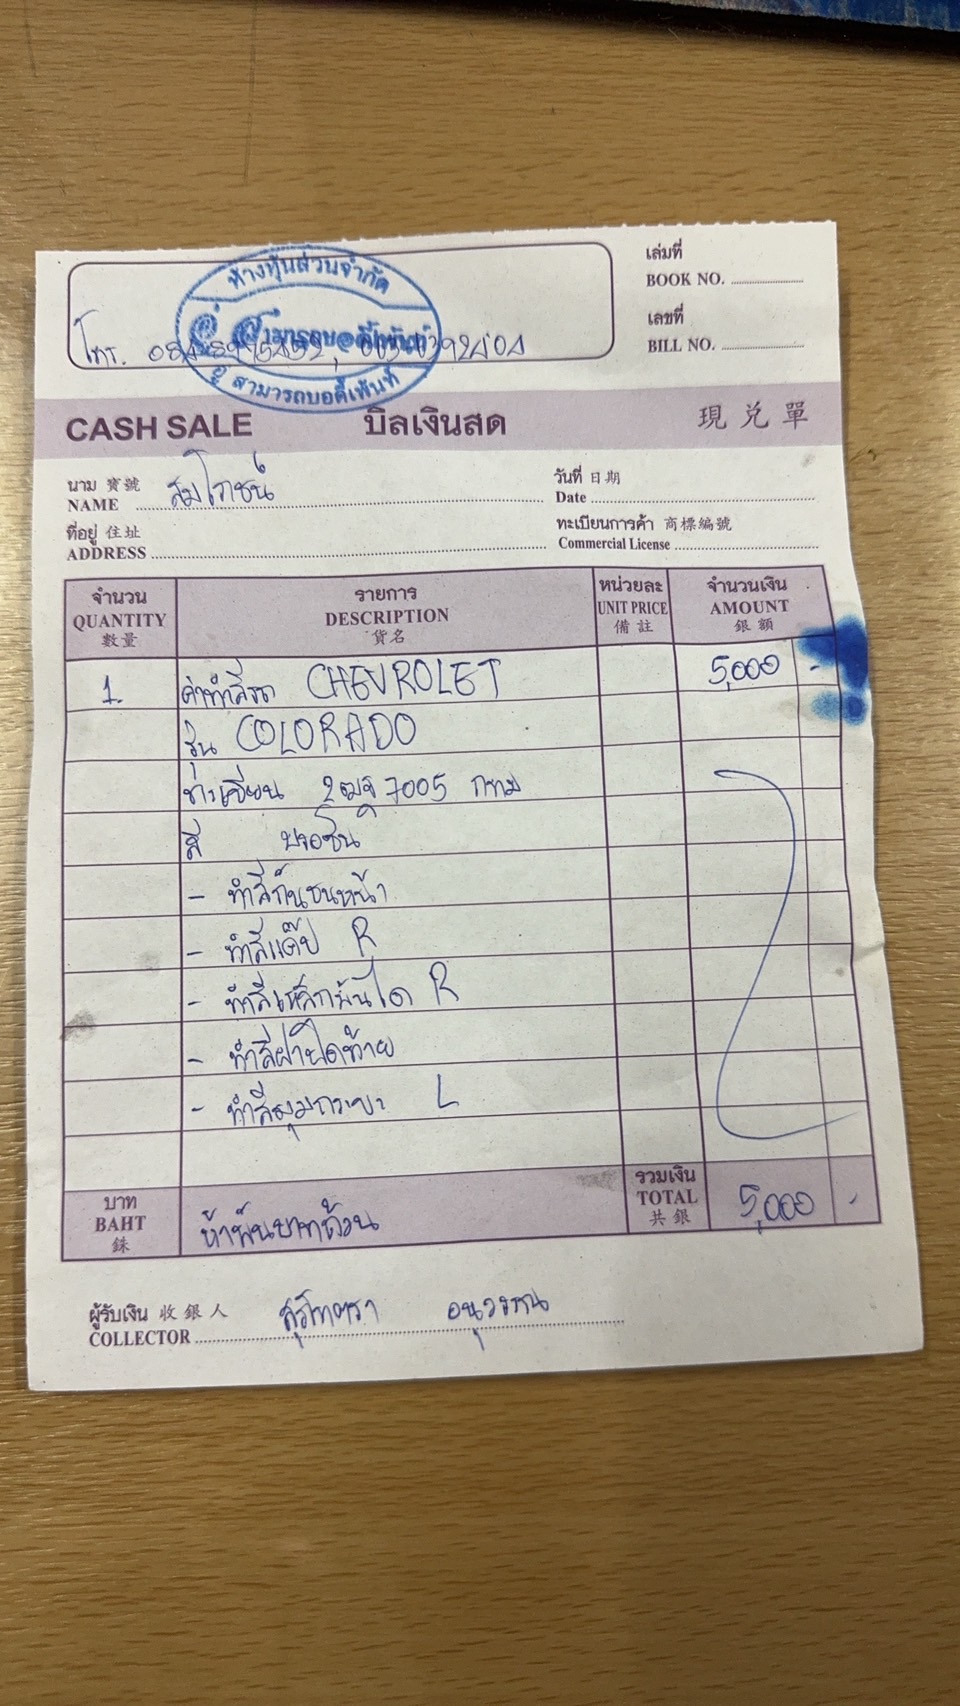 ห้างหุ้นส่วนจำกัด
อู่ สามารถบอดี้เพ้นท์
โทร.
อู่ สามารถบอดี้เพ้นท์
เล่มที่
BOOK NO.
เลขที่
BILL NO.
CASH SALE บิลเงินสด 現兌單
นาม 寶號
NAME สมโภชน์
วันที่ 日期
Date
ที่อยู่ 住址
ADDRESS
ทะเบียนการค้า 商標編號
Commercial License
จำนวน รายการ หน่วยละ จำนวนเงิน
QUANTITY DESCRIPTION UNIT PRICE AMOUNT
數量 貨名 備註 銀額
1. ค่าทำสีรถ CHEVROLET 5,000 -
รุ่น COLORADO
ทะเบียน 2ฒฐ 7005 กทม
สี บรอนซ์
- ทำสีกันชนหน้า
- ทำสีแค๊ป R
- ทำสีเหล็กบันได R
- ทำสีฝาปิดท้าย
- ทำสีมุมกระบะ L
บาท รวมเงิน
BAHT ห้าพันบาทถ้วน TOTAL 5,000 -
銖 共銀
ผู้รับเงิน 收銀人
COLLECTOR